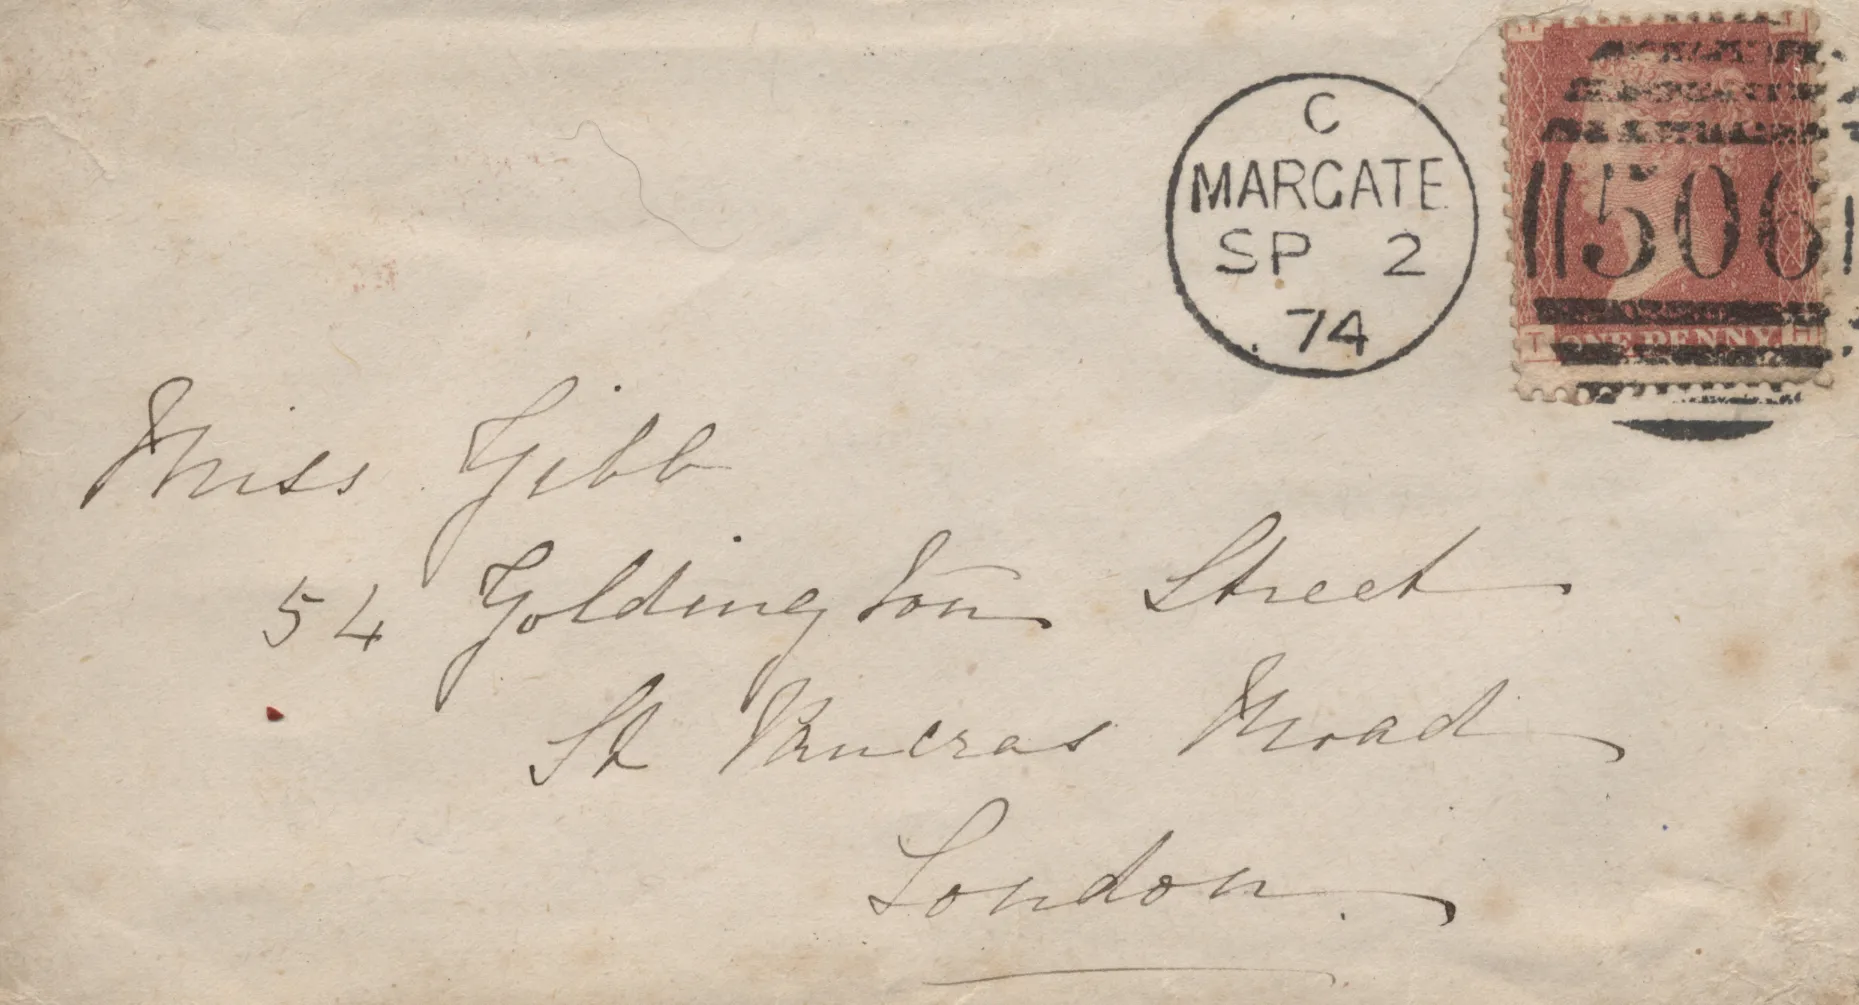 C
MARGATE
SP 2
74
506
T
ONE PENNY
H
Miss Gibb
54 Goldington Street
St Pancras Road
London